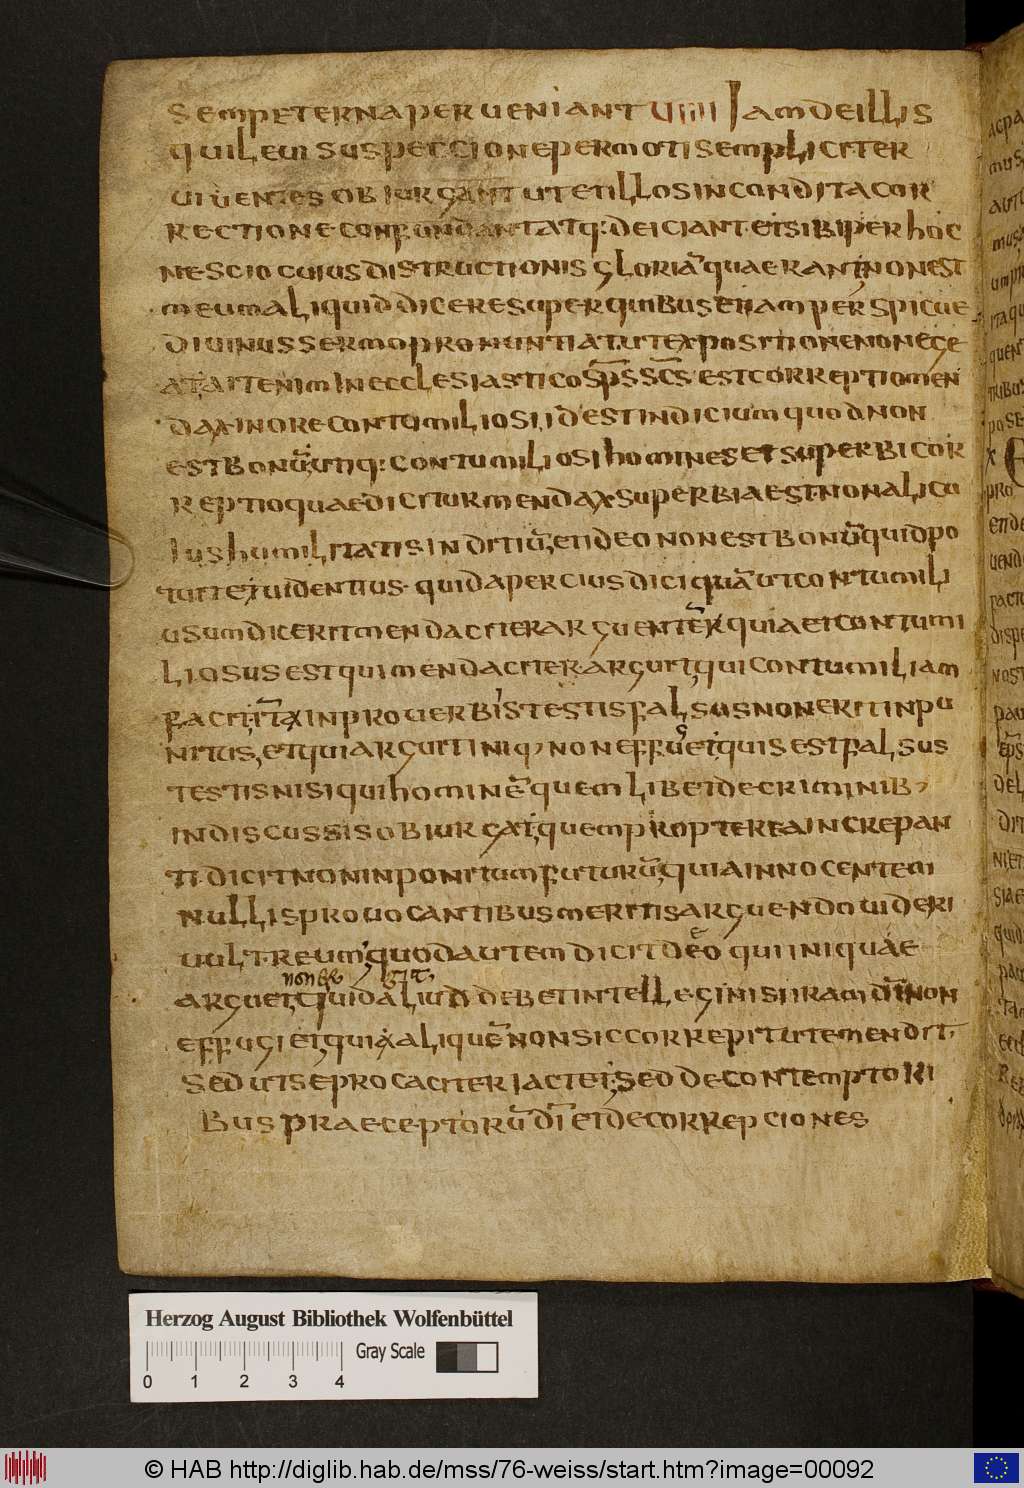 sempeterna perueniant UIIII Iam de illis
qui leui suspeccione permoti sempliciter
uiuentes obiurgant ut et illos incondita cor
rectione confundant atq: deiciant et sibi per hoc
nescio cuius distructionis gloriā quaerant non est
meum aliquid dicere super quibus etiam perspicue
diuinus sermo pronuntiat ut expositione non ege
at ait enim in ecclesiastico sp̄s sc̄s est correptio men
dax in ore contumiliosi id est indicium quod non
est bonū, utiq: contumiliosi homines et superbi cor
reptio quae dicitur mendax superbia est non alicu
ius humilitatis inditiū, et ideo non est bonū quid po
tuit euidentius quid apercius dici quā ut contumili
usum dicerit mendaciter arguentē quia et contumi
liosus est qui mendaciter arguit, qui contumiliam
facit, itā in prouerbiis testis falsus non erit inpu
nitus, et qui arguit iniq, non effugiet, quis est falsus
testis nisi qui hominē quemlibet de criminib,
indiscussis obiurgat, quem propterea increpan
ti dicit non inponitum futurū, quia innocentem
nullis prouocantibus meritis arguendo uideri
uult reum, quod autem dicit de eo qui iniquae
non ef giet,
arguet, quid aliud debet intellegi nisi iram dn̄i non
effugiet, quia aliquē non sic correpit ut emendit,
sed ut se procaciter iactet, sed de contemptori
bus praeceptorū dī et de correpciones
Herzog August Bibliothek Wolfenbüttel
Gray Scale
0 1 2 3 4
© HAB http://diglib.hab.de/mss/76-weiss/start.htm?image=00092